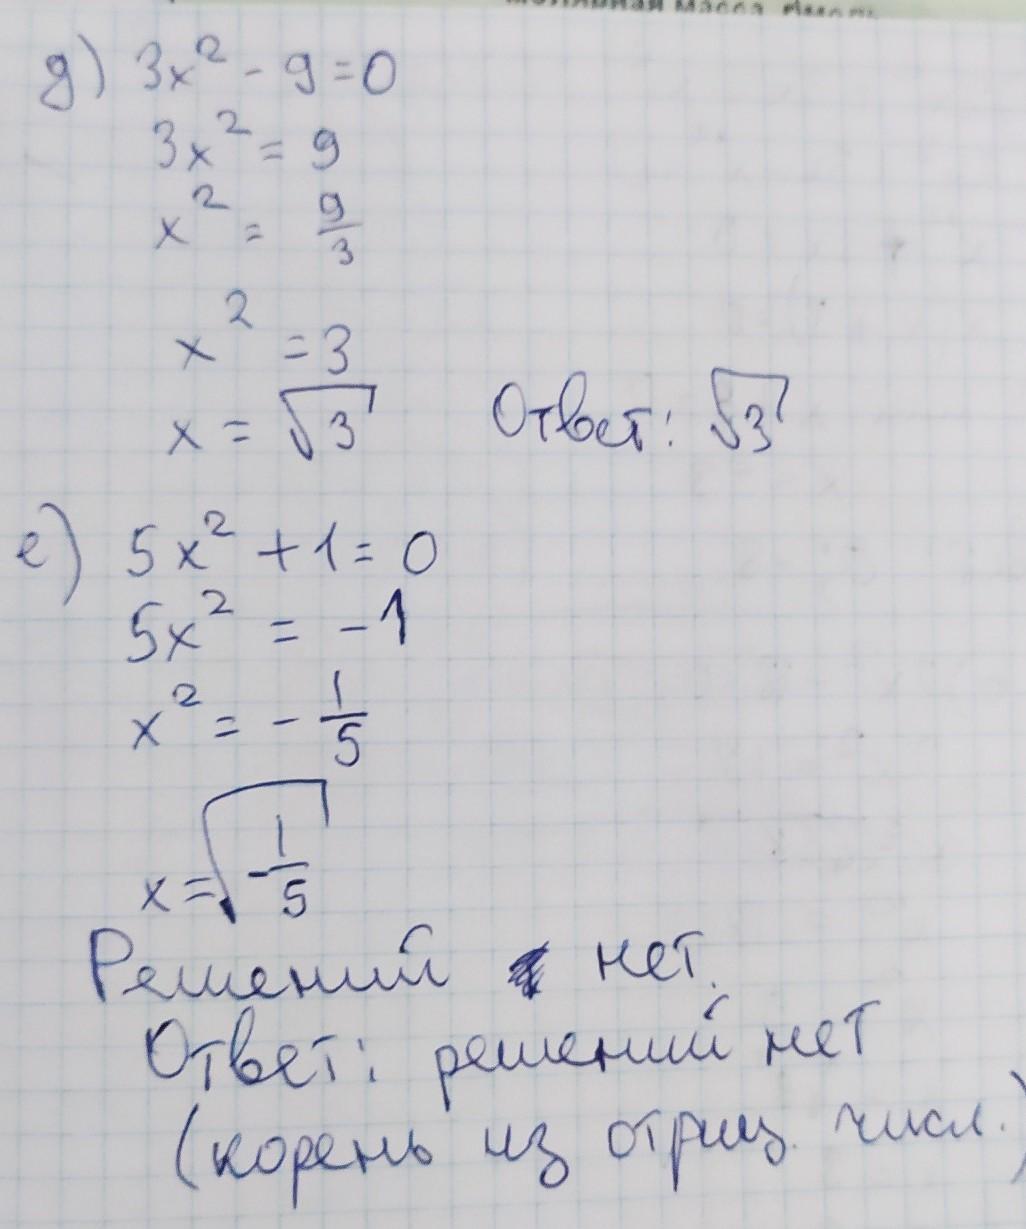 молярная масса
д) 3x² - 9 = 0
3x² = 9
x² = 9/3
x² = 3
x = √3 Ответ: √3
е) 5x² + 1 = 0
5x² = -1
x² = - 1/5
x = √-1/5
Решений нет.
Ответ: решений нет
(корень из отриц. числ.)